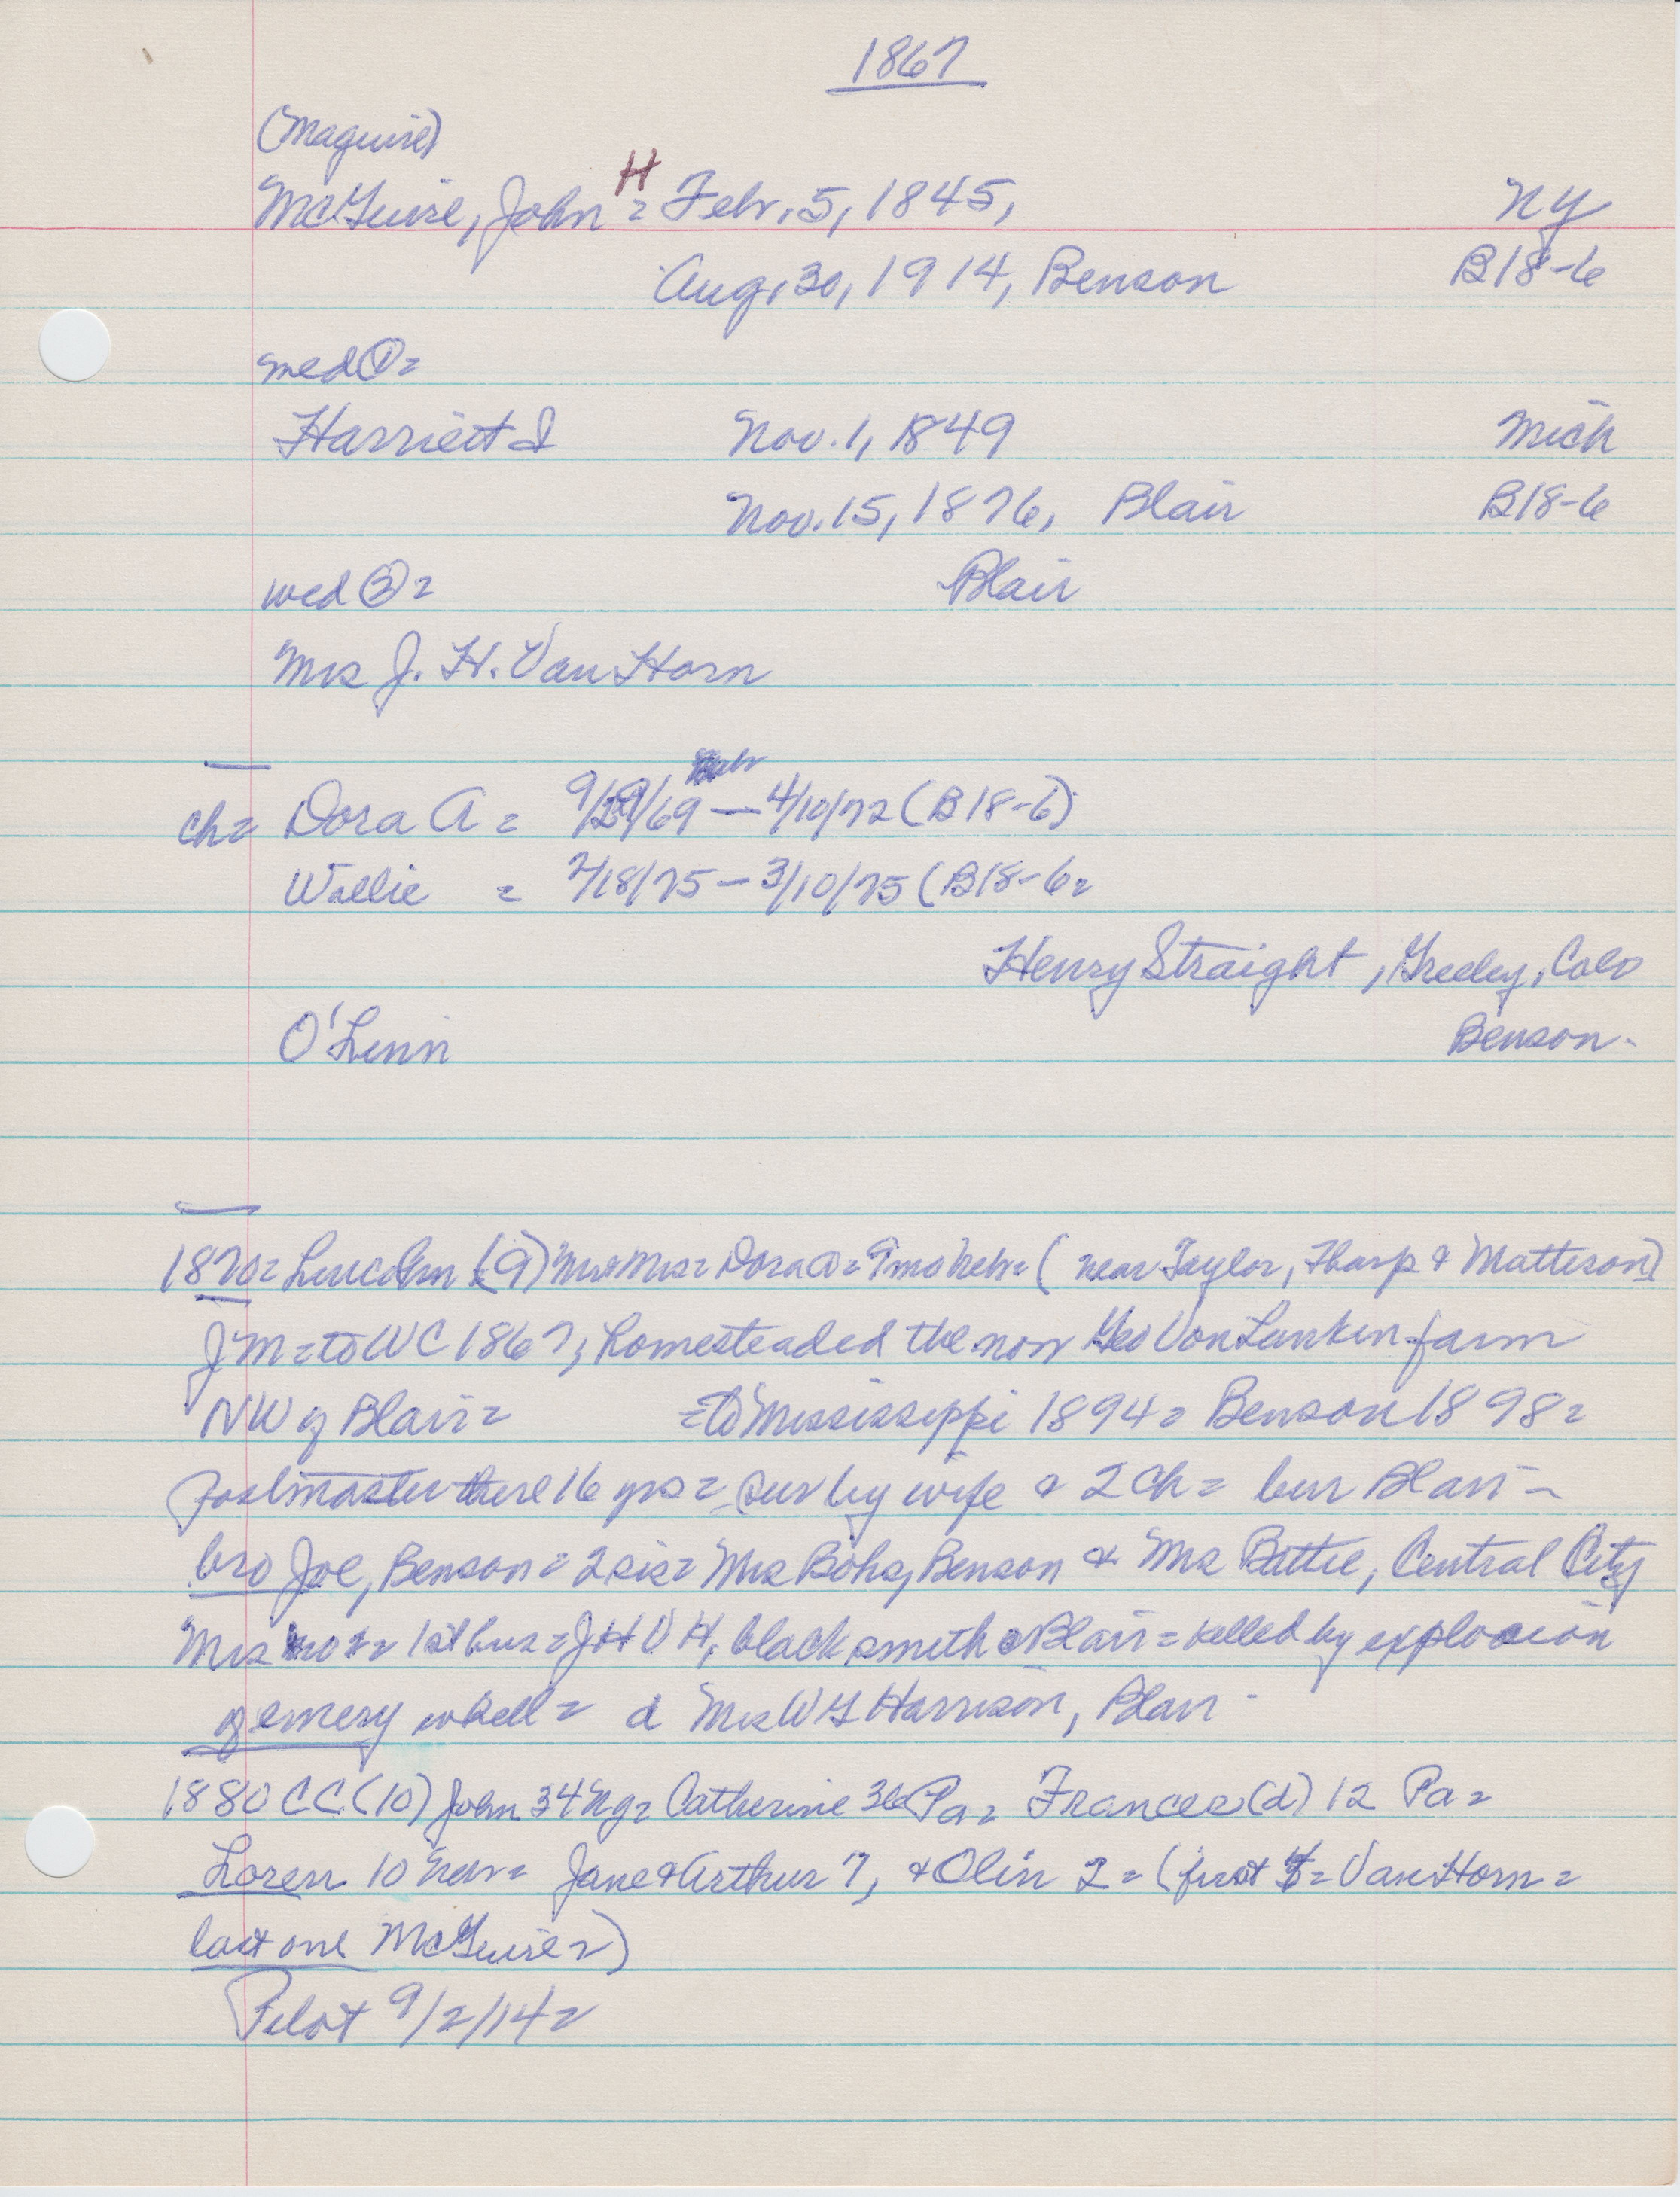 1867
(Maguire)
McGuire, John H = Febr. 5, 1845, NY
Aug. 30, 1914, Benson B18-6
med ① =
Harriett I Nov. 1, 1849 Mich
Nov. 15, 1876, Blair B18-6
wed ② = Blair
Mrs J. H. Van Horn
ch = Dora A = 9/29/69 — 4/10/72 (B18-6)
Willie = 2/18/75 - 3/10/75 (B18-6 =
Henry Straight, Greeley, Colo
O'Linn Benson.
1870 = Lincoln (9) Mr & Mrs = Dora A = 9 mo Nebr = (near Taylor, Tharp & Matteson)
JM = to WC 1867; homesteaded the now Geo Von Lanken farm
NW of Blair = = to Mississippi 1894 = Benson 1898 =
Postmaster there 16 yrs = sur by wife & 2 ch = bur Blair -
bro Joe, Benson = 2 sis = Mrs Bohs, Benson & Mrs Bettie, Central City
Mrs = 1st hus = JHVH, blacksmith Blair = killed by explosion
of emery wheel = d Mrs WG Harrison, Blair -
1880 CC (10) John 34 Ny = Catherine 36 Pa = Frances (d) 12 Pa =
Loren 10 Nebr = Jane & Arthur 7, & Olin 2 = (first 4 = Van Horn =
last one McGuire =)
Pilot 9/2/14 =